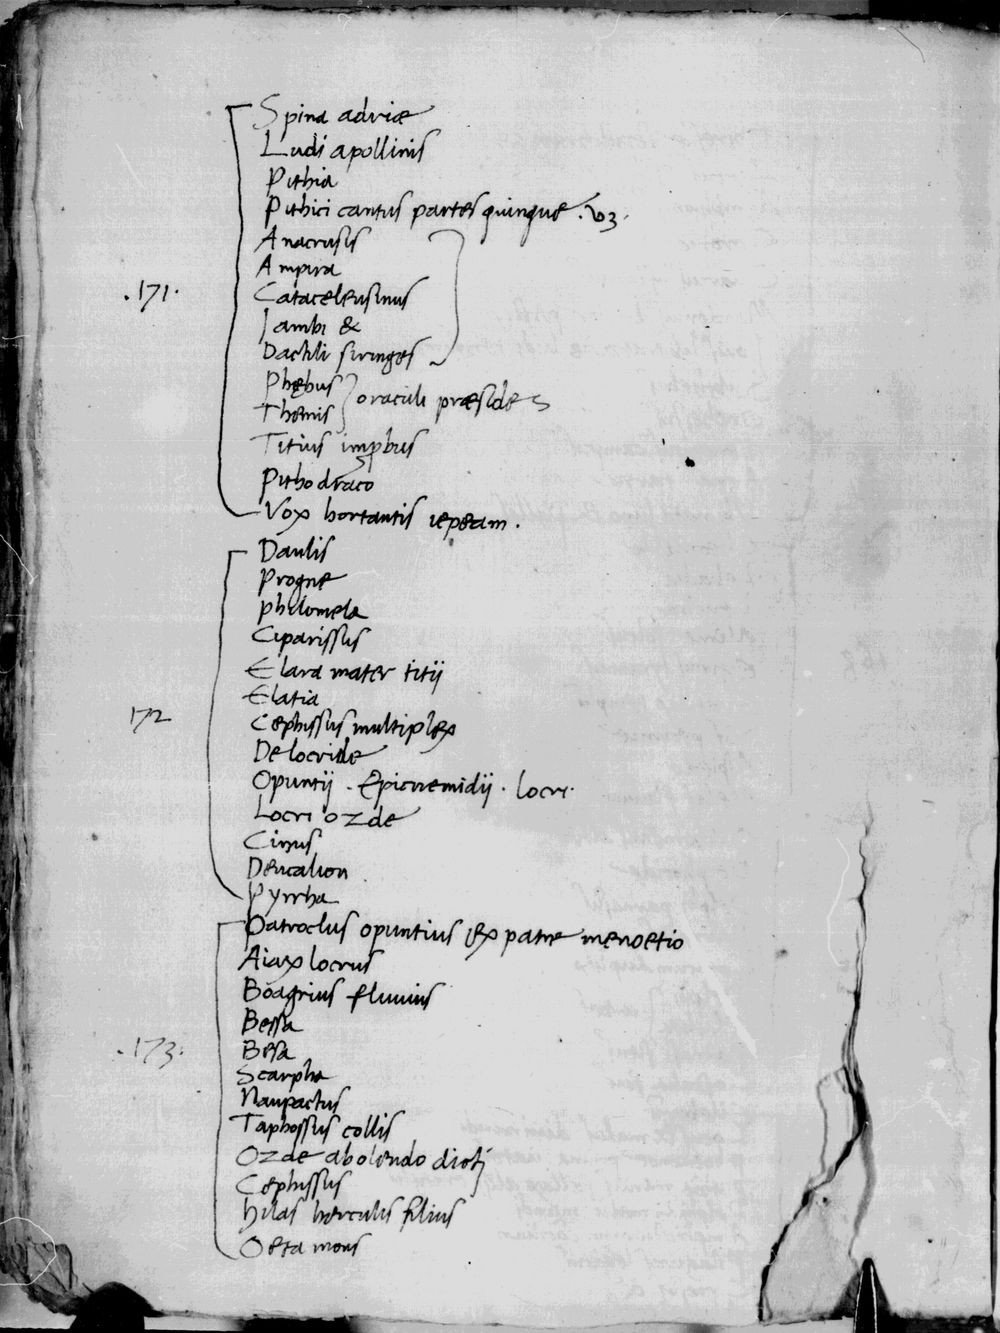 Spina adriæ
Ludi apollinis
Pithia
Pithici cantus partes quinque .
Anacrusis
Ampira
.171. Cataceleusmus
Jambi &
Dactili siringes
Phębus
Themis oraculi præsides
Titius improbus
Pitho draco
Vox hortantis iepeam .
Daulis
Progne
philomela
Ciparissus
Elara mater titij
Elatia
172 Cephissus multiplex
De locride
Opuntij . Epicnemidij . locri.
Locri ozde
Cinus
Deucalion
Pyrrha
Patroclus opuntius ex patre menoetio
Aiax locrus
Boagrius fluvius
Bessa
.173. Besa
Scarpha
Naupactus
Taphossus collis
Ozde abolendo dicti
Cephissus
hilas herculis filius
Oeta mons